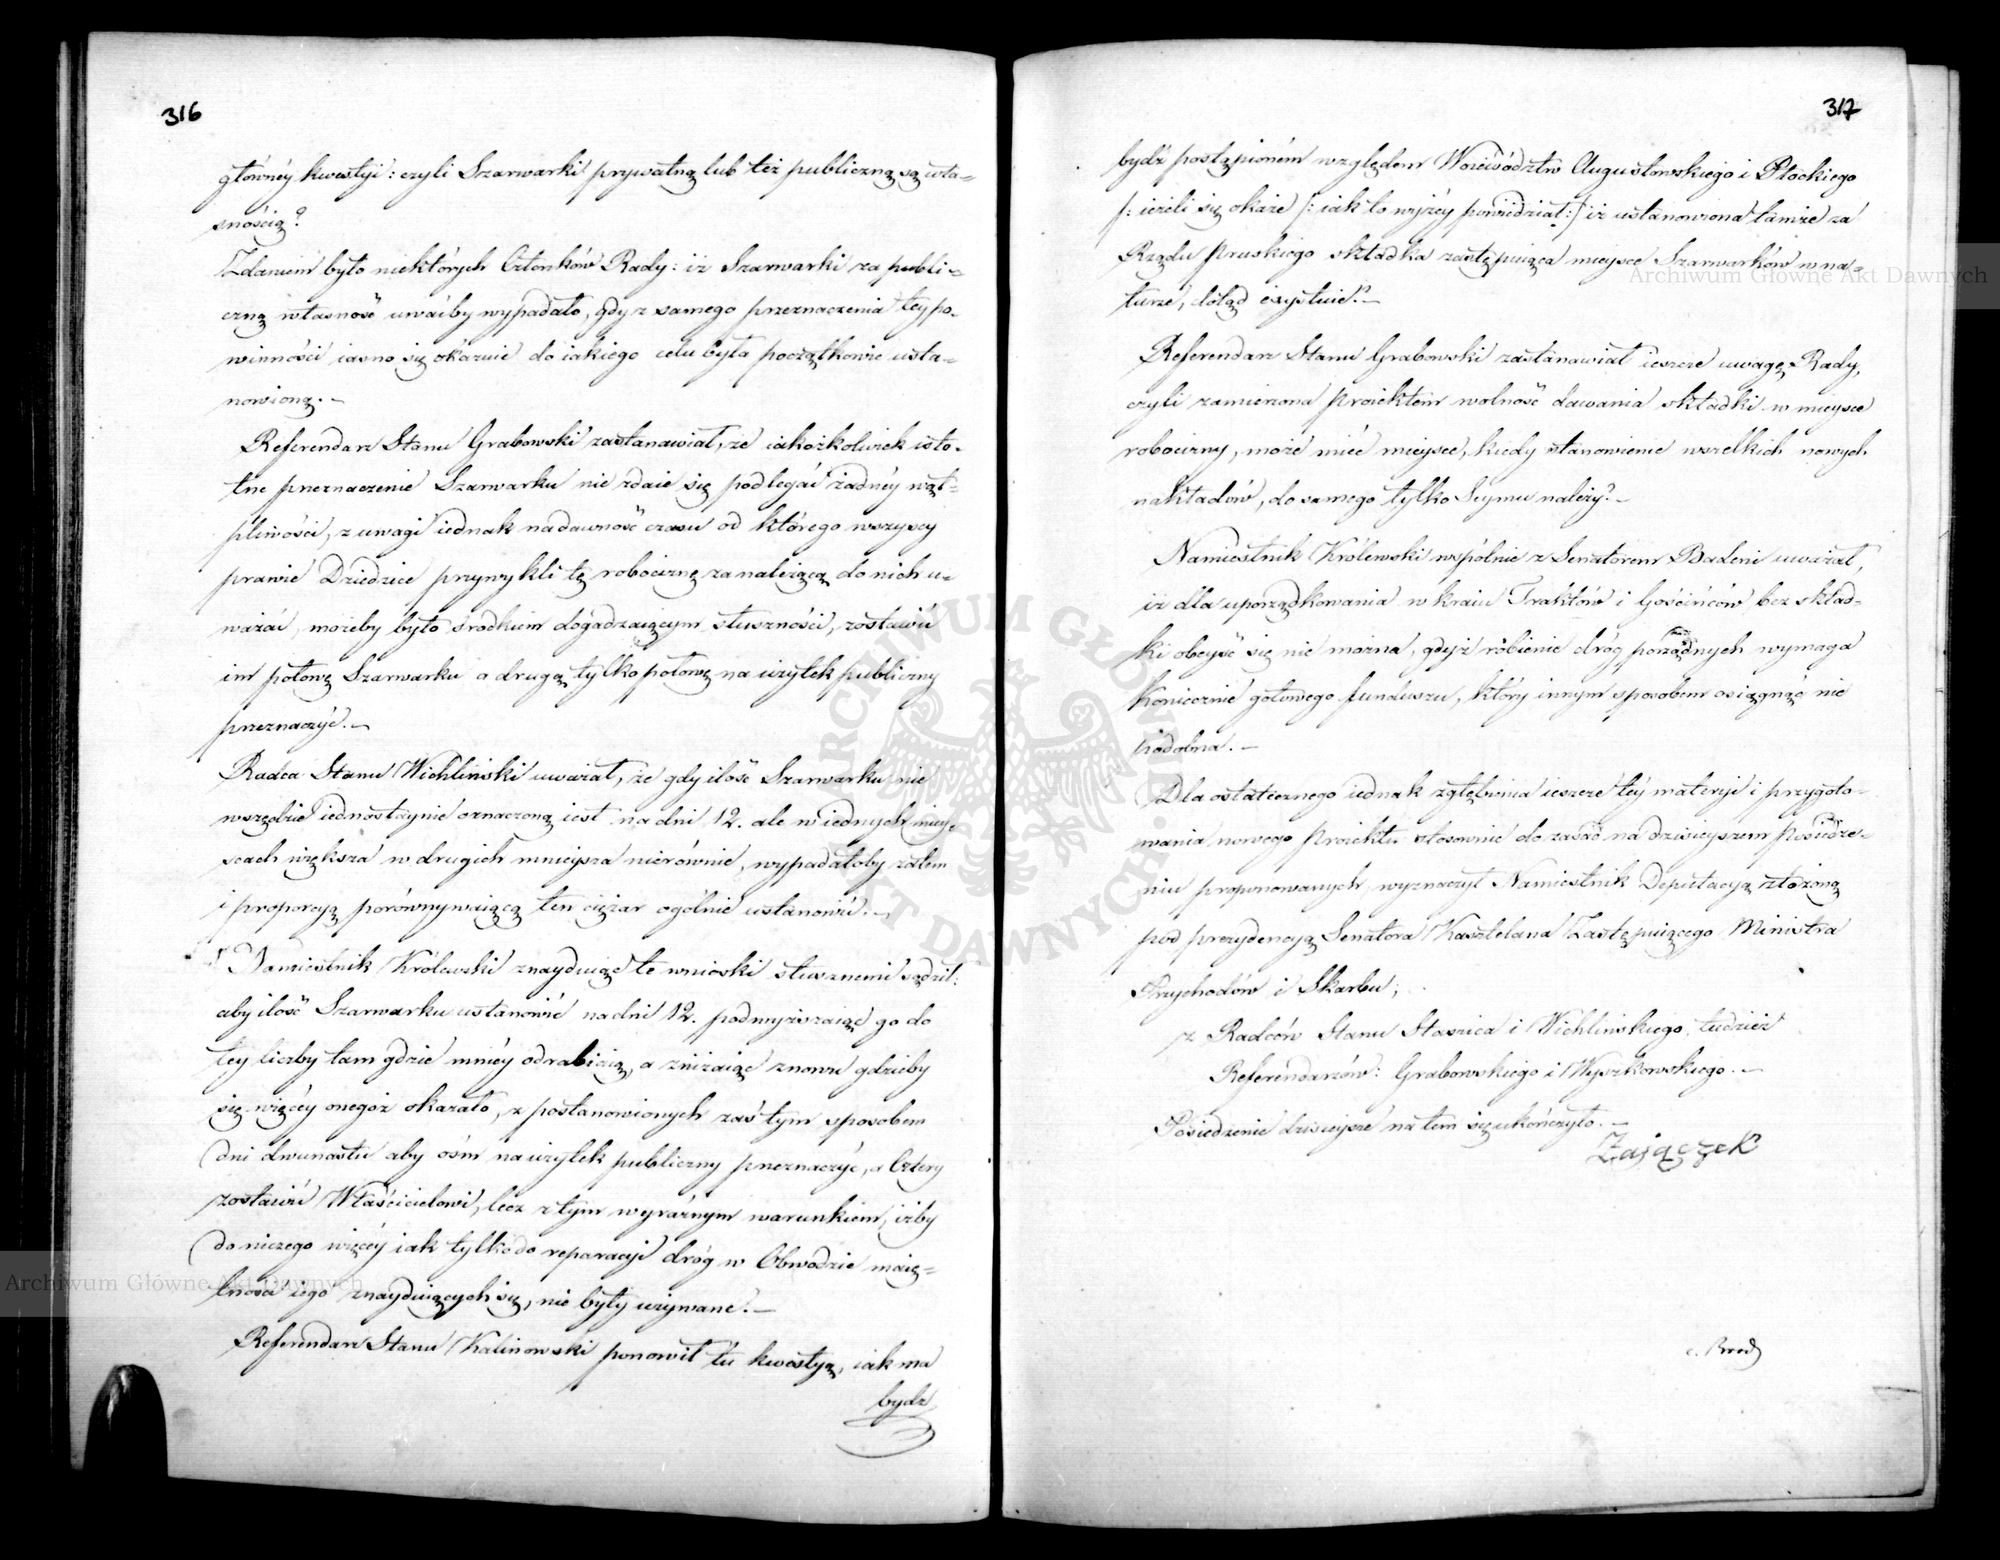 316
główney kwestyi: czyli Szarwarki prywatną lub też publiczną są wła=
snością?
Zdaniem było niektórych Członków Rady: iż Szarwarki za publi=
czną własność uważać by wypadało, gdy z samego przeznaczenia tey po-
winności iasno się okazuie do iakiego celu była początkowie usta=
nowioną.—
Referendarz Stanu Grabowski zastanawiał, że iakożkolwiek isto-
tne przeznaczenie Szarwarku nie zdaie się podlegać żadnéy wąt=
pliwości, z uwagi iednak na dawność czasu od którego wszyscy
prawie Dziedzice przywykli tę robociznę za należącą do nich u=
ważać, możeby było środkiem dogadzaiącym słuszności, zostawić
im połowę Szarwarku a drugą tylko połowę na użytek publiczny
przeznaczyć.—
Radca Stanu Wichliński uważał, że gdy ilość Szarwarku nie
wszędzie iednostaynie oznaczoną iest na dni 12. ale w iednych miey-
scach większa w drugich mnieysza nierównie, wypadałoby zatem
i proporcyą porównywaiącą ten ciężar ogólnie ustanowić.—
Namiestnik Królewski znayduiąc te wnioski słusznemi sądził:
aby ilość Szarwarku ustanowić na dni 12. podwyższaiąc go do
tey liczby tam gdzie mniéy odrabiaią, a zniżaiąc znowu gdzieby
się więcéy onegoż okazało, z postanowionych zaś tym sposobem
dni dwunastu aby ośm na użytek publiczny przeznaczyć, a Cztery
zostawić Właścicielowi, lecz z tym wyraźnym warunkiem, iżby
do niczego więcéy iak tylko do reparacyi dróg w Obwodzie maię=
tności iego znayduiących się, nie były używane.—
Referendarz Stanu Kalinowski ponowił tu kwestyą, iak ma
bydz
317
bydź postąpioném względem Woiewództw Augustowskiego i Płockiego
/: ieżeli się okaże /: iak to wyżéy powiedział:/ iż ustanowiona tamże za
Rządu Pruskiego składka zastępuiąca mieysce Szarwarków w na=
turze, dotąd exystuie?—
Referendarz Stanu Grabowski zastanawiał ieszcze uwagę Rady,
czyli zamierzona proiektem wolność dawania składki w mieysce
robocizny, może mieć mieysce, kiedy stanowienie wszelkich nowych
nakładów, do samego tylko Seymu należy?—
Namiestnik Królewski wspólnie z Senatorem Badeni uważał,
iż dla uporządkowania w kraiu Traktów i Gościńców bez skład-
ki obeyść się nie można, gdyż robienie dróg porządnych wymaga
koniecznie gotowego funduszu, który innym sposobem osiągnąć nie
podobna.—
Dla ostatecznego iednak zgłębienia ieszcze téy materyi i przygoto-
wania nowego Proiektu stosownie do zasad na dzisieyszem posiedze-
niu proponowanych, wyznaczył Namiestnik Deputacyą złożoną
pod prezydencyą Senatora Kasztelana Zastępuiącego Ministra
Przychodów i Skarbu;
z Radców Stanu Staszica i Wichlińskiego, tudzież
Referendarzów: Grabowskiego i Wyszkowskiego.—
Posiedzenie dzisieysze na tem się ukończyło.—
Zajączek
Archiwum Główne Akt Dawnych
Archiwum Główne Akt Dawnych
ARCHIWUM GŁÓWNE AKT DAWNYCH